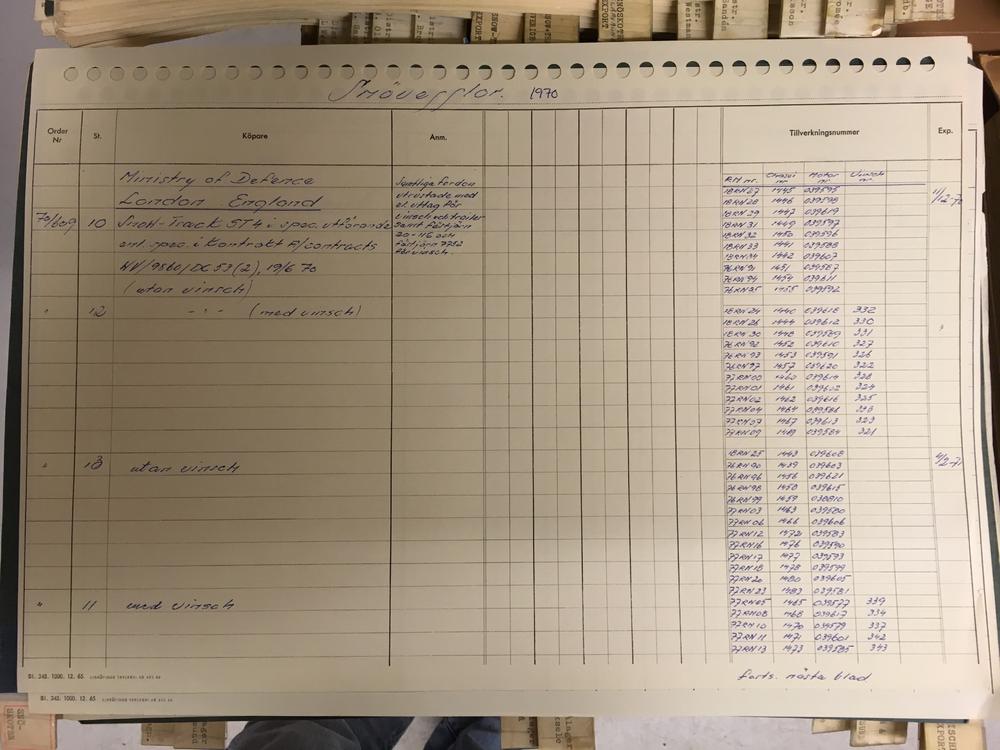 Snövesslor. 1970
Order Nr St. Köpare Anm. Tillverkningsnummer Exp.
Ministry of Defence
London England
70/609 10 Snow-Track ST4 i spec. utförande
enl. spec. i Kontrakt A/contracts
NV/9560/DC53(2), 19/6 70
(utan vinsch)
Samtliga fordon
utrustade med
el. uttag för
samt förtjärn
för vinsch.
RN nr. Chassi nr Motor nr. Vinsch nr.
18RN27 1445 039595 11/12-70
18RN28 1446 039598
18RN29 1447 039619
18RN31 1449 039597
18RN32 1450 039596
18RN33 1441 039588
18RN34 1442 039607
76RN91 1451 039587
76RN94 1454 039611
76RN95 1455 039592
" 12 - " - (med vinsch)
18RN24 1440 039618 332
18RN26 1444 039612 330
18RN30 1448 039589 331
76RN92 1452 039610 327
76RN93 1453 039591 326
76RN97 1457 039620 322
77RN00 1460 039614 328
77RN01 1461 039602 324
77RN02 1462 039616 325
77RN04 1464 039586
77RN07 1467 039613 323
77RN09 1469 039584 321
" 13 utan vinsch
18RN25 1443 039608
76RN90 1439 039603
76RN96 1456 039621
76RN98 1458 039615
76RN99 1459 038810
77RN03 1463 039580
77RN06 1466 039606
77RN12 1472 039583
77RN16 1476 039590
77RN17 1477 039593
77RN18 1478 039599
77RN20 1480 039605
77RN23 1483 039581
" 11 med vinsch
77RN05 1465 039577 339
77RN08 1468 039617 334
77RN10 1470 039579 337
77RN11 1471 039601 342
77RN13 1473 039585 343
forts. nästa blad
Bl. 343. 1000. 12. 65
Bl. 343. 1000. 12. 65